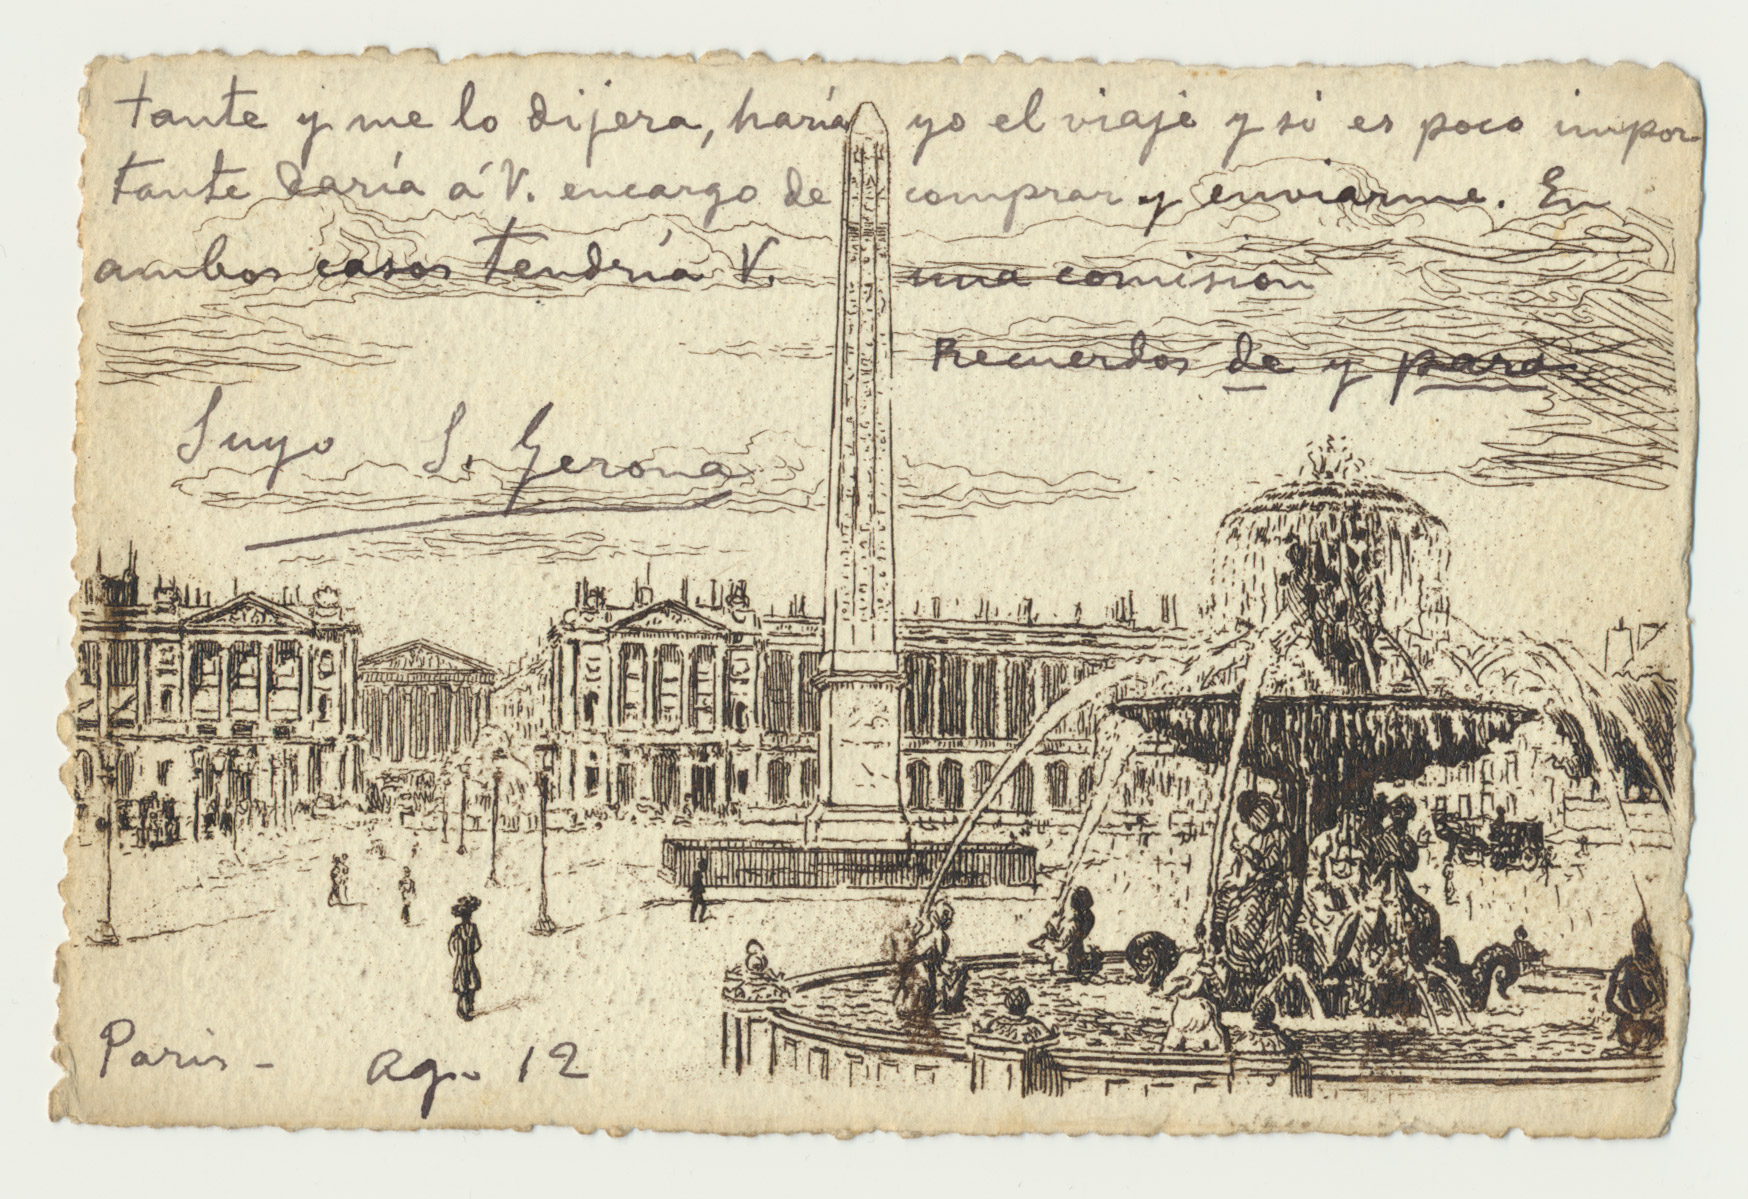 tante y me lo dijera, haría yo el viaje y si es poco impor-
tante daría á V. encargo de comprar y enviarme. En
ambos casos tendría V. una comision
Recuerdos de y para
Suyo S. Gerona
Paris - ago 12